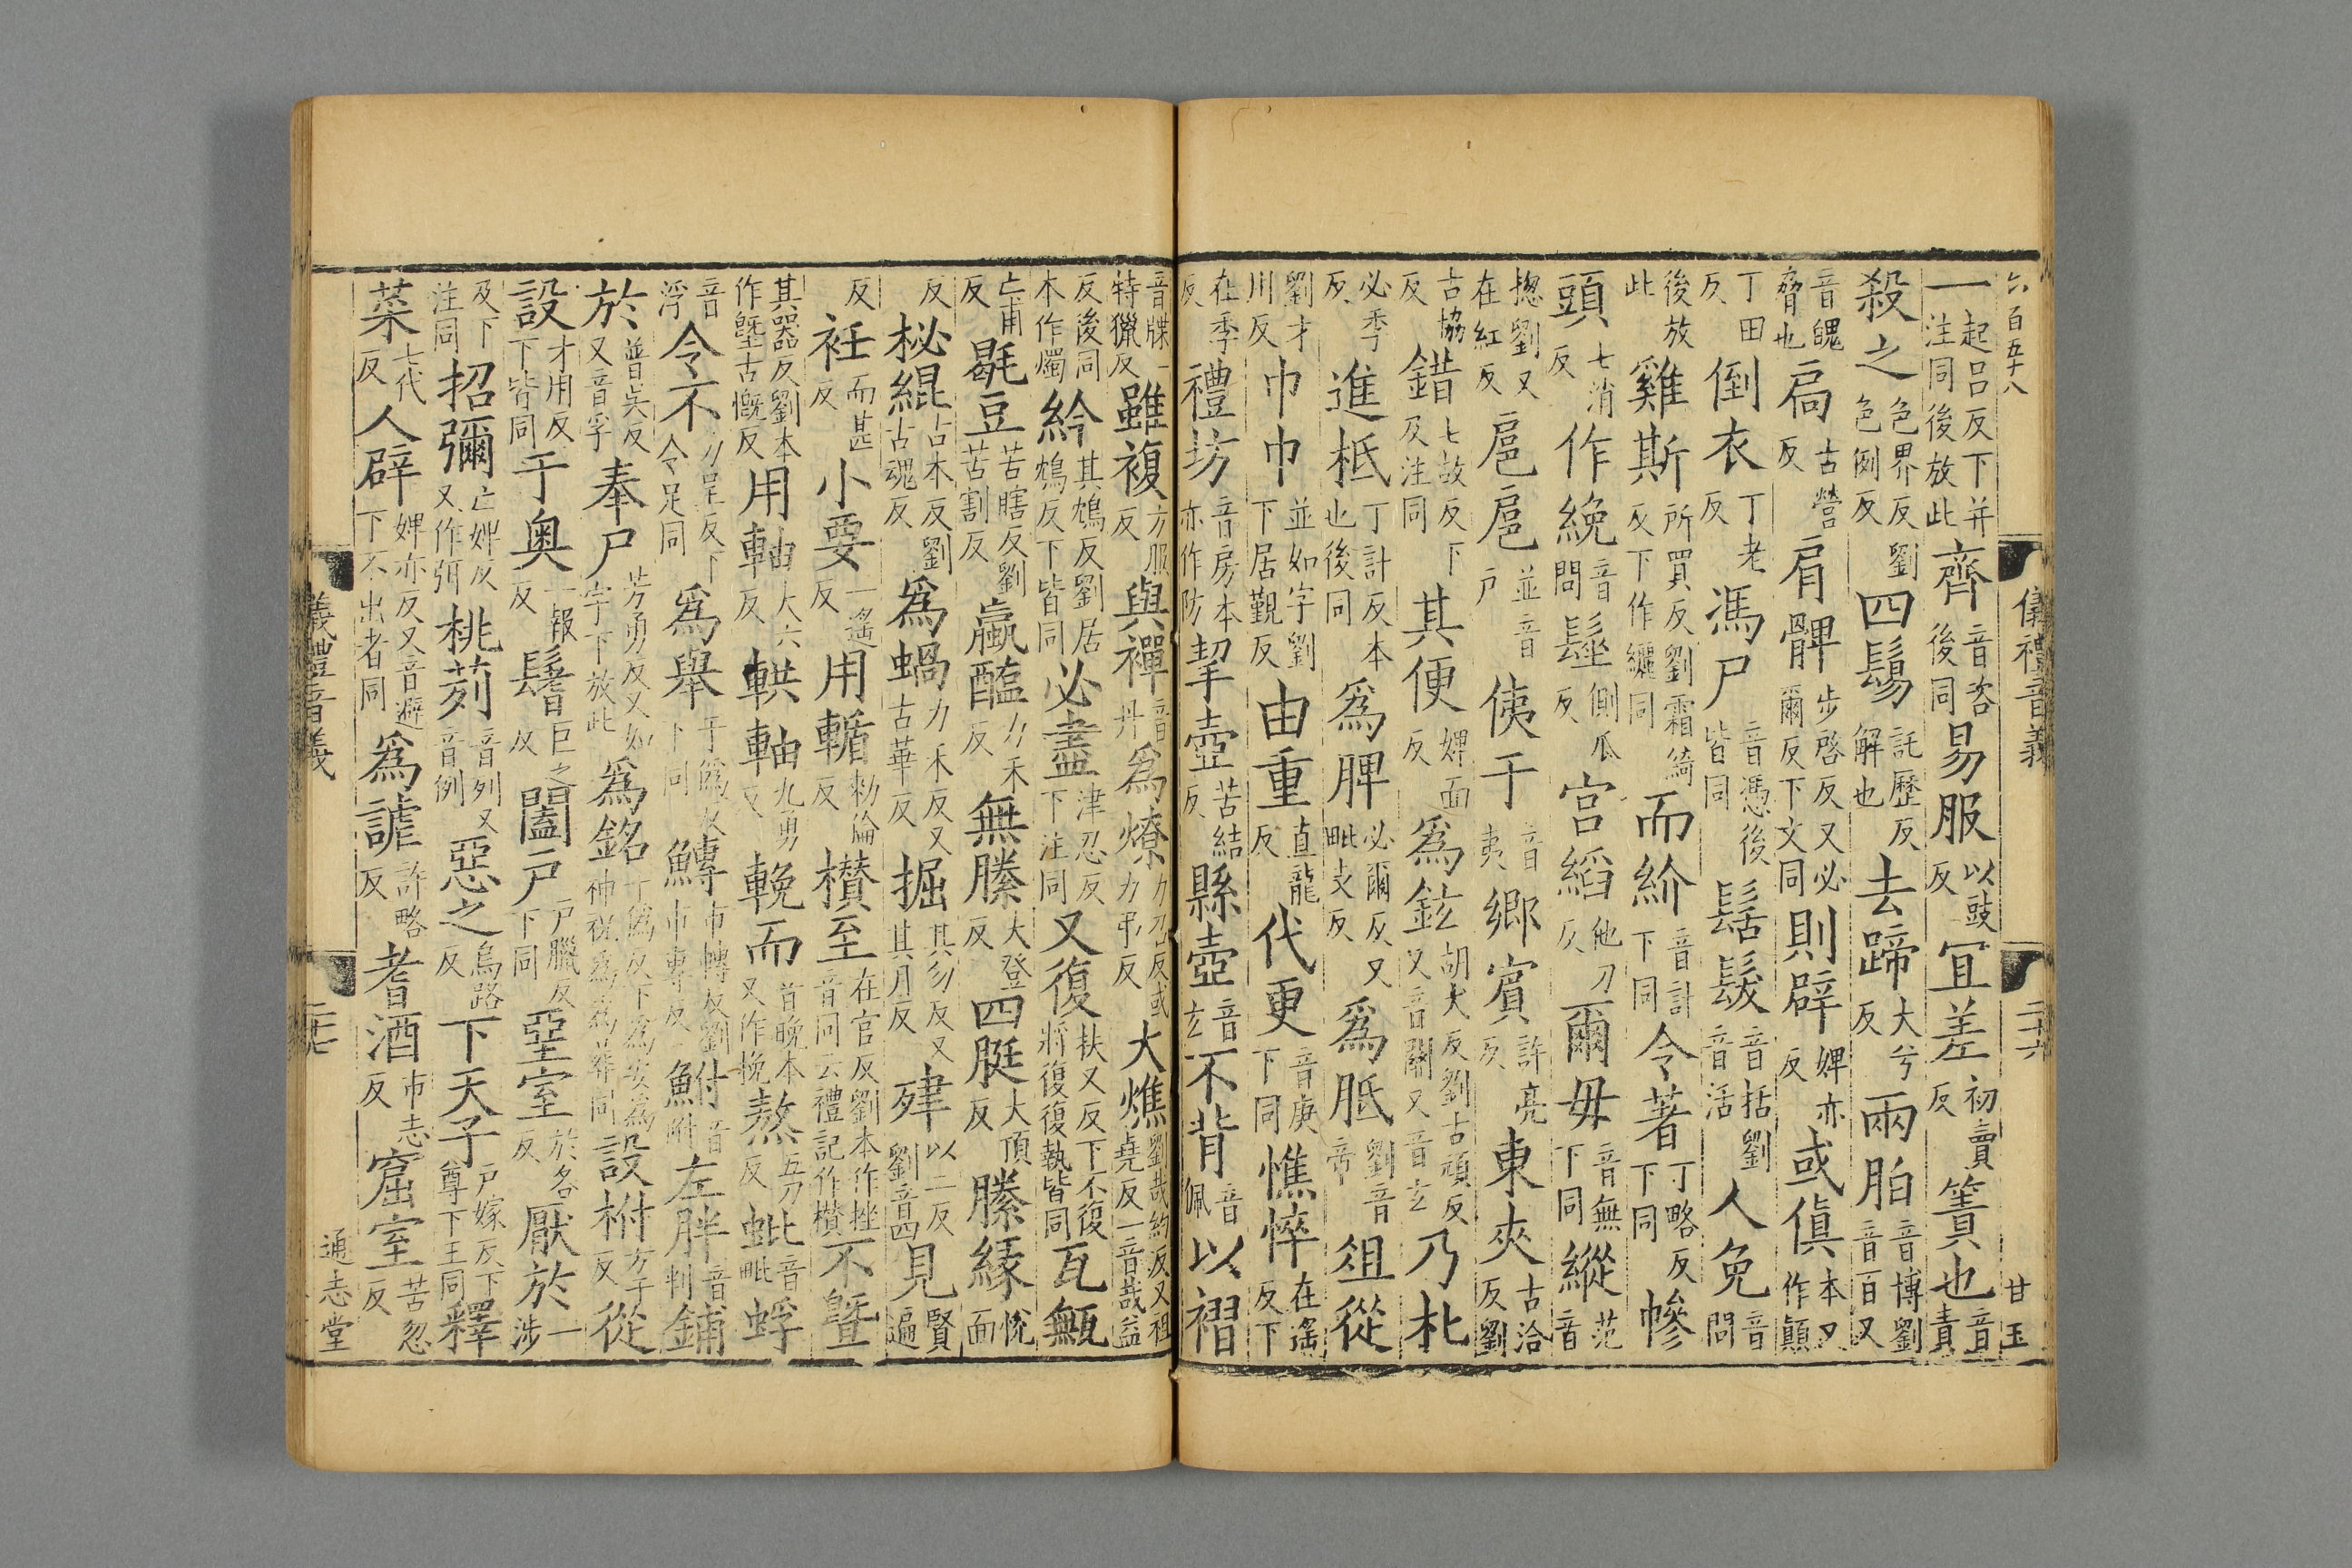 六百五十八 儀禮音義 二十六 甘玉
一起呂反下并注同後放此齊音咨後同易服以豉反宜差初賣反簀也音責
殺之色界反劉色例反四鬄託歷反解也去蹄大兮反兩胉音博劉音百又
音魄脅也扃古營反肩髀步啓反又必爾反下文同則辟婢亦反或傎本又作顛
丁田反倒衣丁老反馮尸音憑後皆同髺髮音括劉音活人免音問
後放此雞斯所買反劉霜綺反下作纚同而紒音計下同令著丁略反下同幓
頭七消反作絻音問髽側瓜反宫縚他刀反爾毋音無下同縱范音
揔劉又在紅反扈扈並音户侇于音夷鄉賓許亮反東夾古洽反劉
古協反錯七故反下及注同其便婢面反爲鉉胡犬反劉古頑反又音關又音玄乃朼
必季反進柢丁計反本也後同爲脾必爾反又毗支反爲胝劉音帝俎從
劉才川反巾巾並如字劉下居覲反由重直龍反代更音庚下同憔悴在遙反下
在季反禮坊音房本亦作防挈壺苦結反縣壺音玄不背音佩以褶
音牒一特獵反雖複方服反與襌音丹爲燎力召反或力弔反大燋劉哉約反又祖堯反一音哉益
反後同本作燭紟其鴆反劉居鴆反下皆同必盡津忍反下注同又復扶又反下不復將復復執皆同瓦甒
亡甫反毼豆苦瞎反劉苦割反蠃醢力禾反無縢大登反四脡大頂反縢緣悅面
反柲緄古本反劉古魂反爲蝸力禾反又古華反掘其勿反又其月反肂以二反劉音四見賢遍
反衽而甚反小要一遙反用輴勑倫反欑至在官反劉本作挫音同云禮記作欑不曁
其器反劉本作墍古慨反用軸大六反輁軸九勇反輓而音晚本又作挽熬五刀反蚍音毗蜉
音浮令不力呈反下令足同爲舉于僞反下同鱄市轉反劉市專反鮒音附左胖音判鋪
於普吳反又音孚奉尸芳勇反又如字下放此爲銘于僞反下爲安爲神祝爲爲葬同設柎方于反從
設才用反下皆同于奥一報反鬐巨之反闔户户臘反下同堊室於各反厭於一涉
反下注同招彌亡婢反又作弭桃茢音列又音例惡之烏路反下天子户嫁反下尊下王同釋
菜七代反人辟婢亦反又音避下不出者同爲謔許略反耆酒市志反窟室苦忽反
儀禮音義 二十七 通志堂